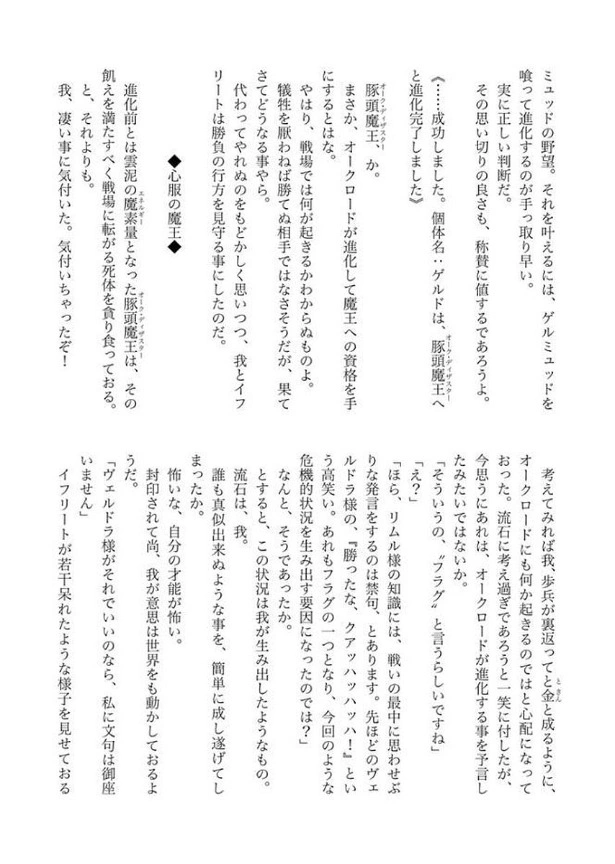 ミュッドの野望。それを叶えるには、ゲルミュッドを
喰って進化するのが手っ取り早い。
実に正しい判断だ。
その思い切りの良さも、称賛に値するであろうよ。
《……成功しました。個体名：ゲルドは、豚頭魔王へ
オーク・ディザスター
と進化完了しました》
豚頭魔王、か。
オーク・ディザスター
まさか、オークロードが進化して魔王への資格を手
にするとはな。
やはり、戦場では何が起きるかわからぬものよ。
犠牲を厭わねば勝てぬ相手ではなさそうだが、果て
さてどうなる事やら。
代わってやれぬのをもどかしく思いつつ、我とイフ
リートは勝負の行方を見守る事にしたのだ。
◆心服の魔王◆
進化前とは雲泥の魔素量となった豚頭魔王は、その
エネルギー
オーク・ディザスター
飢えを満たすべく戦場に転がる死体を貪り食っておる。
と、それよりも。
我、凄い事に気付いた。気付いちゃったぞ！
考えてみれば我、歩兵が裏返ってと金と成るように、
ときん
オークロードにも何か起きるのではと心配になって
おった。流石に考え過ぎであろうと一笑に付したが、
今思うにあれは、オークロードが進化する事を予言し
たみたいではないか。
「そういうの、〝フラグ〟と言うらしいですね」
「え？」
「ほら、リムル様の知識には、戦いの最中に思わせぶ
りな発言をするのは禁句、とあります。先ほどのヴェ
ルドラ様の、『勝ったな、クアッハッハッハ！』とい
う高笑い。あれもフラグの一つとなり、今回のような
危機的状況を生み出す要因になったのでは？」
なんと、そうであったか。
とすると、この状況は我が生み出したようなもの。
流石は、我。
誰も真似出来ぬような事を、簡単に成し遂げてし
まったか。
怖いな、自分の才能が怖い。
封印されて尚、我が意思は世界をも動かしておるよ
うだ。
「ヴェルドラ様がそれでいいのなら、私に文句は御座
いません」
イフリートが若干呆れたような様子を見せておる